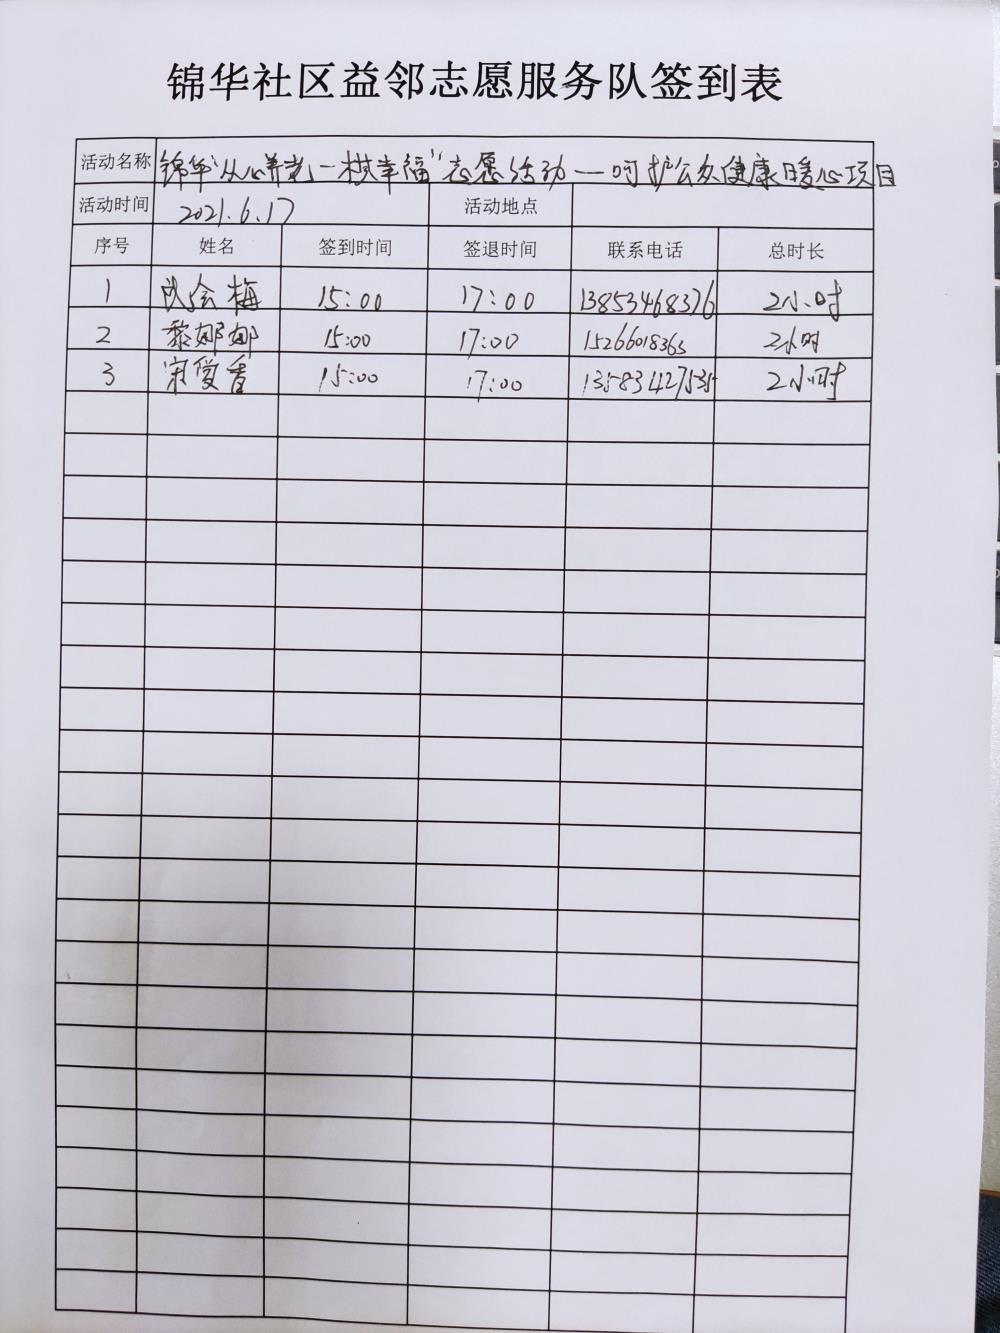 锦华社区益邻志愿服务队签到表
活动名称 锦华"从心养老一棋幸福"志愿活动——呵护公众健康暖心项目
活动时间 2021.6.17 活动地点
序号 姓名 签到时间 签退时间 联系电话 总时长
1 会梅 15:00 17:00 13853468376 2小时
2 黎娜娜 15:00 17:00 15266018365 2小时
3 宋爱香 15:00 17:00 13583427535 2小时